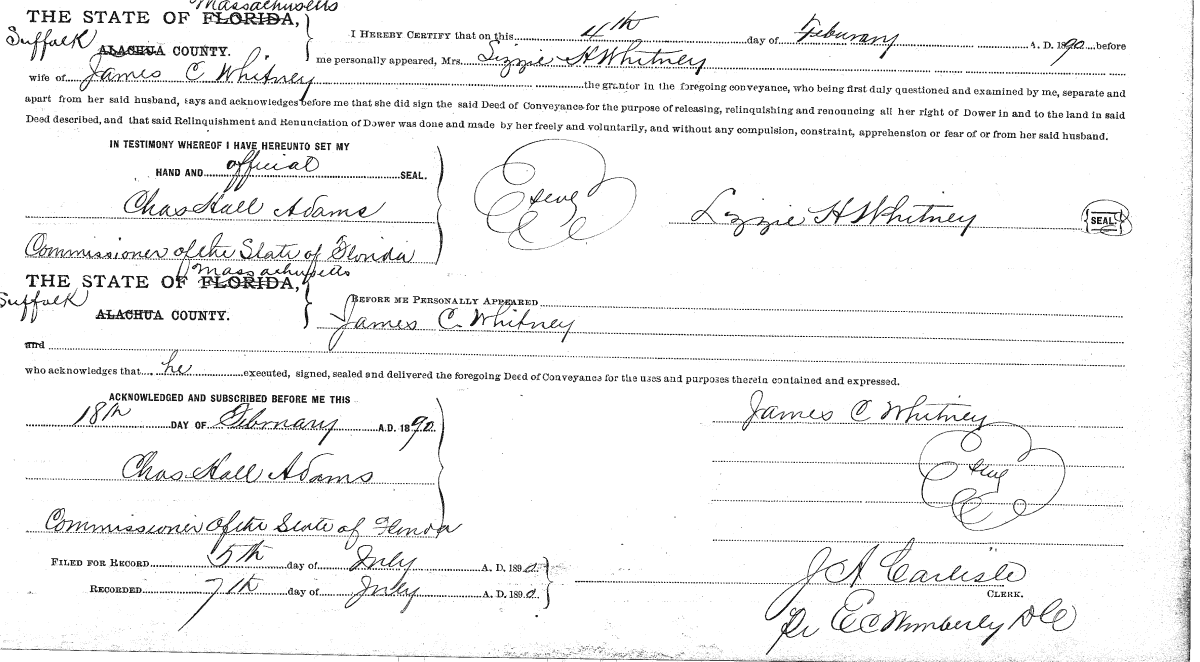 Massachusetts
THE STATE OF FLORIDA,
Suffolk
ALACHUA COUNTY.
I HEREBY CERTIFY that on this 4th day of Feburary A. D. 1890 before
me personally appeared, Mrs. Lizzie H Whitney
wife of James C Whitney the grantor in the foregoing conveyance, who being first duly questioned and examined by me, separate and
apart from her said husband, says and acknowledges before me that she did sign the said Deed of Conveyance for the purpose of releasing, relinquishing and renouncing all her right of Dower in and to the land in said
Deed described, and that said Relinquishment and Renunciation of Dower was done and made by her freely and voluntarily, and without any compulsion, constraint, apprehension or fear of or from her said husband.
IN TESTIMONY WHEREOF I HAVE HEREUNTO SET MY
HAND AND official SEAL.
Chas Hall Adams
Lizzie H Whitney SEAL
Commissioner of the State of Florida
Massachusetts
THE STATE OF FLORIDA,
Suffolk
ALACHUA COUNTY.
BEFORE ME PERSONALLY APPEARED
James C. Whitney
and
who acknowledges that he executed, signed, sealed and delivered the foregoing Deed of Conveyance for the uses and purposes therein contained and expressed.
ACKNOWLEDGED AND SUBSCRIBED BEFORE ME THIS
18th DAY OF Febuary A.D. 1890.
James C Whitney
Chas Hall Adams
Commissioner of the State of Florida
FILED FOR RECORD 5th day of July A. D. 1890.
RECORDED 7th day of July A. D. 1890.
J A Carlisle
CLERK.
Pr E C Wimberly D C